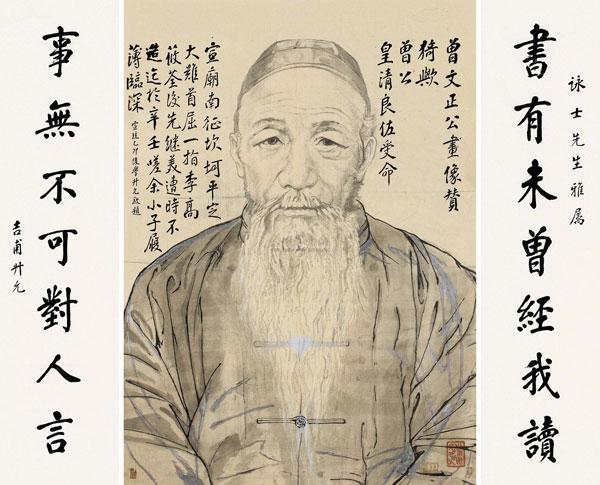 詠士先生雅属
書有未曾經我讀
曾文正公畫像贊
猗歟
曾公
皇清良佐受命
宣廟南征坎坷平定
大難首屈一指李高
筱荃後先継美遭時不
造迄於辛壬嗟余小子履
薄臨深
宣統乙卯後學升允敬題
事無不可對人言
吉甫升允